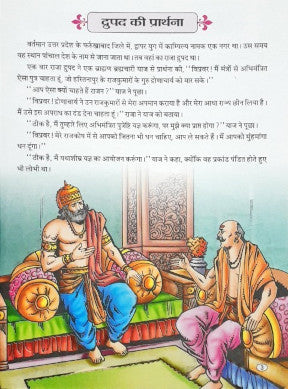 द्रुपद की प्रार्थना
वर्तमान उत्तर प्रदेश के फर्रुखाबाद जिले में, द्वापर युग में काम्पिल्य नामक एक नगर था। उस समय
वह स्थान पांचाल देश के नाम से जाना जाता था। तब वहां का राजा द्रुपद था।
एक बार राजा द्रुपद ने एक ब्राह्मण ब्रह्मचारी याज से प्रार्थना की, ''विप्रवर! मैं मंत्रों से अभिमंत्रित
ऐसा पुत्र चाहता हूं, जो हस्तिनापुर के राजकुमारों के गुरु द्रोणाचार्य को मार सके।''
''आप ऐसा क्यों चाहते हैं राजन?'' याज ने पूछा।
''विप्रवर! द्रोणाचार्य ने उन राजकुमारों से मेरा अपमान कराया है और मेरा आधा राज्य छीन लिया है।
मैं उसे इस अपराध का दंड देना चाहता हूं।'' राजा ने याज को बताया।
''ठीक है, मैं तुम्हारे लिए अभिमंत्रित पुत्रेष्टि यज्ञ करूंगा, पर मुझे क्या प्राप्त होगा?'' याज ने पूछा।
''विप्रवर! मेरे राजकोष में से आपको जितना भी धन चाहिए, आप ले सकते हैं। मैं आपको मुंहमांगा
धन दूंगा।''
''ठीक है, मैं यथाशीघ्र यज्ञ का आयोजन करूंगा।'' याज ने कहा, क्योंकि वह प्रकांड पंडित होते हुए
भी लोभी था।
3